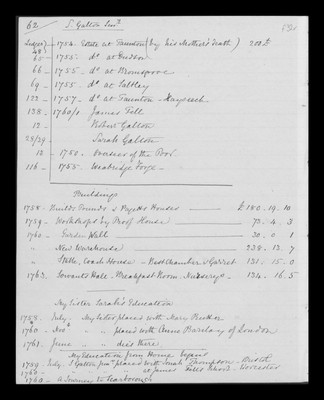 62. S. Galton Senr.
1754. Estate at Taunton (by his Mother's death) 200 £
48
60 - 1755. do at Duddon
66 - 1755. do at Bromsgrove
69 - 1755 do at Saltley
122 - 1757. do at Taunton -
138 - 1760/1 James Fell
12 - Robert Galton
28/29 Sarah Galton
12 - 1758. Overseer of the Poor.
116 - 1755. Forge -
Buildings
1758. Built Founds & Houses £180.19.10
1759. Workshops by Proof House 73.4.3
1760. Garden Wall 30.0.1
" New Warehouse 238.13.7
" Stable, Coach House - Best Chamber & Garret 131.15.0
1763. Servants Hall. Breakfast Room. Nursery &c 134.16.5
My Sister Sarah's Education
1758. July. My Sister placed with Mary
1760. Novr " " placed with Anne Barclay of London
1761. June " " dies there.
My Education from Home begins
1759. July. S Galton junr placed with Thompson - Bristol
1760 - " " at James Fell's School - Worcester
1760. A Journey to Scarboro'